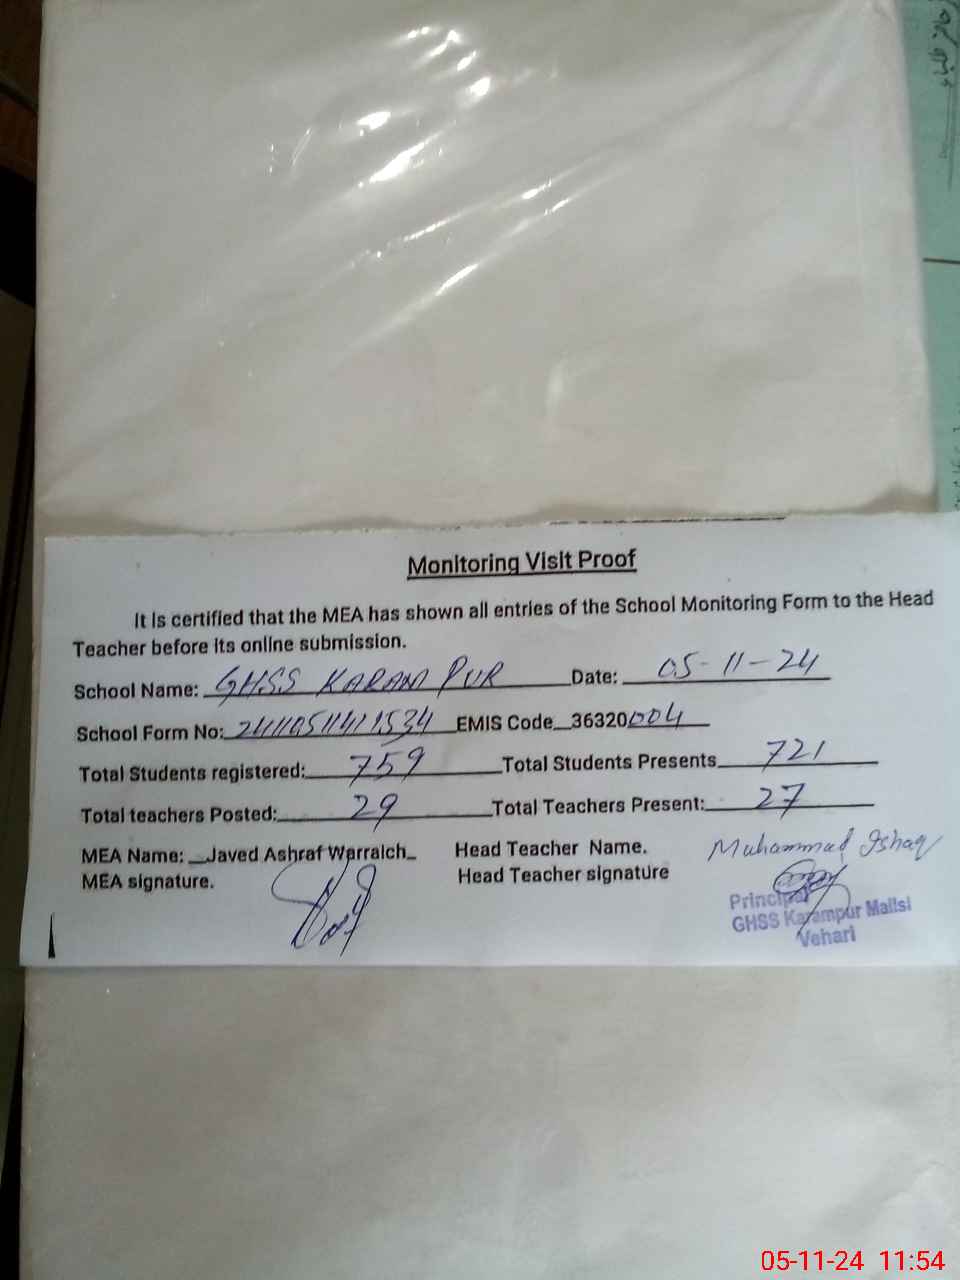 Monitoring Visit Proof
It is certified that the MEA has shown all entries of the School Monitoring Form to the Head
Teacher before its online submission.
School Name: GHSS KARAM PUR Date: 05-11-24
School Form No: EMIS Code 36320004
Total Students registered: 759 Total Students Presents 721
Total teachers Posted: 29 Total Teachers Present: 27
MEA Name: Javed Ashraf Warraich Head Teacher Name. Muhammad Ishaq
MEA signature. Head Teacher signature
Principal
GHSS Karampur Mailsi
Vehari
05-11-24 11:54